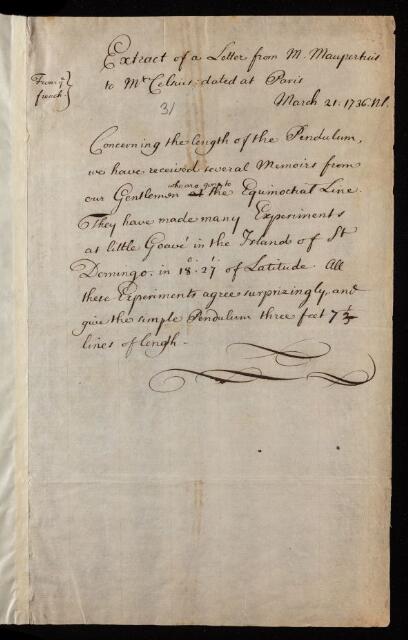 Extract of a Letter from M. Maupertuis
From ye
french
to Mr. Celsius: dated at Paris
31
March 21. 1736. NS.
Concerning the length of the Pendulum,
we have received several Memoirs from
who are gone to
our Gentlemen at the Equinoctial Line.
They have made many Experiments
at little Goavé in the Island of St
Domingo. in 18°. 27' of Latitude. All
these Experiments agree surprizingly, and
give the simple Pendulum three feet 7 1/3
lines of length -